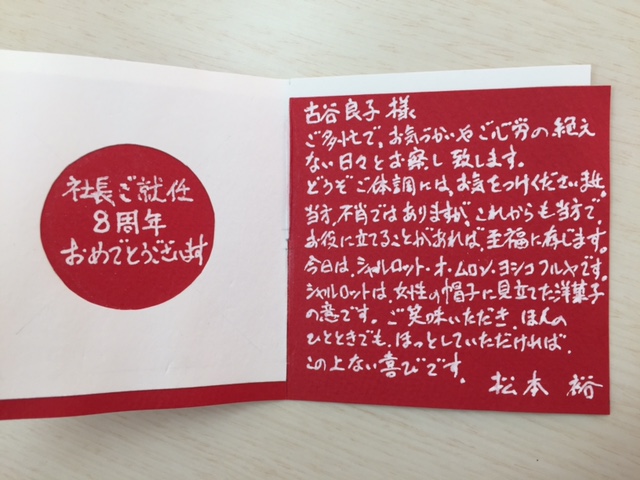 社長ご就任
8周年
おめでとうございます
古谷良子様
ご多忙で、お気づかいやご心労の絶え
ない日々とお察し致します。
どうぞご体調には、お気をつけくださいませ。
当方、不肖ではありますが、これからも当方で、
お役に立てることがあれば、至福に存じます。
今日は、シャルロット・オ・ムロン、ヨシコフルヤです。
シャルロットは、女性の帽子に見立てた洋菓子
の意です。ご笑味いただき、ほんの
ひとときでも、ほっとしていただければ、
この上ない喜びです。
松本 裕